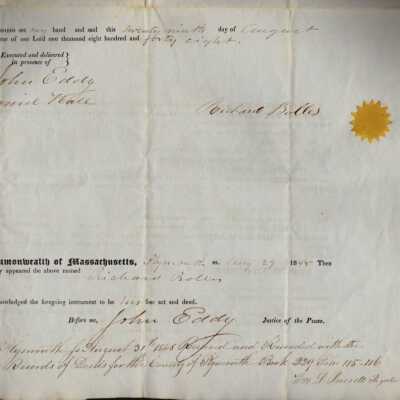 hereunto set my hand and seal this twenty ninth day of August
year of our Lord one thousand eight hundred and forty eight.
Executed and delivered
in presence of
John Eddy
Daniel Hall
Richard Bolles
Commonwealth of Massachusetts, Plymouth ss. Aug 29 1848 Then
appeared the above named
Richard Bolles
acknowledged the foregoing instrument to be his free act and deed.
Before me, John Eddy Justice of the Peace.
Plymouth ss. August 31st 1848 Received and Recorded with the
Records of Deeds for the County of Plymouth Book 229 115-116